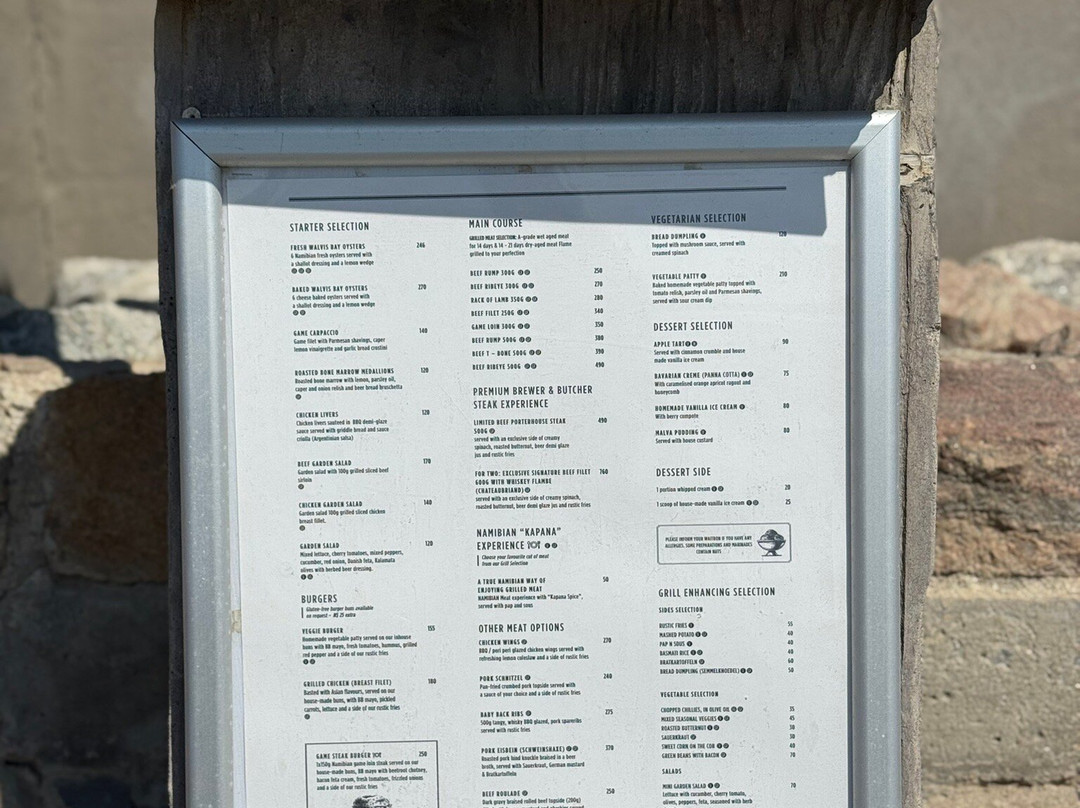 STARTER SELECTION
FRESH WALVIS BAY OYSTERS 246
6 Namibian fresh oysters served with
a shallot dressing and a lemon wedge
BAKED WALVIS BAY OYSTERS 270
6 cheese baked oysters served with
a shallot dressing and a lemon wedge
GAME CARPACCIO 140
Game filet with Parmesan shavings, caper
lemon vinaigrette and garlic bread crostini
ROASTED BONE MARROW MEDALLIONS 120
Roasted bone marrow with lemon, parsley oil,
caper and onion relish and beer bread bruschetta
CHICKEN LIVERS 120
Chicken livers sauteed in BBQ demi-glaze
sauce served with griddle bread and sauce
criolla (Argentinian salsa)
BEEF GARDEN SALAD 170
Garden salad with 100g grilled sliced beef
sirloin
CHICKEN GARDEN SALAD 140
Garden salad 100g grilled sliced chicken
breast fillet.
GARDEN SALAD 120
Mixed lettuce, cherry tomatoes, mixed peppers,
cucumber, red onion, Danish feta, Kalamata
olives with herbed beer dressing.
BURGERS
Gluten-free burger buns available
on request - N$ 25 extra
VEGGIE BURGER 155
Homemade vegetable patty served on our inhouse
buns with BB mayo, fresh tomatoes, hummus, grilled
red pepper and a side of our rustic fries
GRILLED CHICKEN (BREAST FILLET) 180
Basted with Asian flavours, served on our
house-made buns, with BB mayo, pickled
carrots, lettuce and a side of our rustic fries
GAME STEAK BURGER 250
1x150g Namibian game loin steak served on our
house-made buns, BB mayo with beetroot chutney,
bacon feta cream, fresh tomatoes, frizzled onions
and a side of our rustic fries
MAIN COURSE
GRILLED MEAT SELECTION: A-grade wet aged meat
for 14 days & 14 - 21 days dry-aged meat Flame
grilled to your perfection
BEEF RUMP 300G 250
BEEF RIBEYE 300G 270
RACK OF LAMB 350G 280
BEEF FILET 250G 340
GAME LOIN 300G 350
BEEF RUMP 500G 380
BEEF T - BONE 500G 390
BEEF RIBEYE 500G 490
PREMIUM BREWER & BUTCHER
STEAK EXPERIENCE
LIMITED BEEF PORTERHOUSE STEAK 490
500G
served with an exclusive side of creamy
spinach, roasted butternut, beer demi glaze
jus and rustic fries
FOR TWO: EXCLUSIVE SIGNATURE BEEF FILET 760
600G WITH WHISKEY FLAMBE
(CHATEAUBRIAND)
served with an exclusive side of creamy spinach,
roasted butternut, beer demi glaze jus and rustic fries
NAMIBIAN "KAPANA"
EXPERIENCE
Choose your favourite cut of meat
from our Grill Selection
A TRUE NAMIBIAN WAY OF 50
ENJOYING GRILLED MEAT
NAMIBIAN Meat experience with "Kapana Spice",
served with pap and sous
OTHER MEAT OPTIONS
CHICKEN WINGS 270
BBQ / peri peri glazed chicken wings served with
refreshing lemon coleslaw and a side of rustic fries
PORK SCHNITZEL 240
Pan-fried crumbed pork topside served with
a sauce of your choice and a side of rustic fries
BABY BACK RIBS 275
500g tangy, whisky BBQ glazed, pork spareribs
served with rustic fries
PORK EISBEIN (SCHWEINSHAXE) 370
Roasted pork hind knuckle braised in a beer
broth, served with Sauerkraut, German mustard
& Bratkartoffeln
BEEF ROULADE 250
Dark gravy braised rolled beef topside (200g)
VEGETARIAN SELECTION
BREAD DUMPLING 120
Topped with mushroom sauce, served with
creamed spinach
VEGETABLE PATTY 210
Baked homemade vegetable patty topped with
tomato relish, parsley oil and Parmesan shavings,
served with sour cream dip
DESSERT SELECTION
APPLE TART 90
Served with cinnamon crumble and house
made vanilla ice cream
BAVARIAN CREME (PANNA COTTA) 75
With caramelised orange apricot ragout and
honeycomb
HOMEMADE VANILLA ICE CREAM 80
With berry compote
MALVA PUDDING 80
Served with house custard
DESSERT SIDE
1 portion whipped cream 20
1 scoop of house-made vanilla ice cream 25
PLEASE INFORM YOUR WAITRON IF YOU HAVE ANY
ALLERGIES. SOME PREPARATIONS AND MARINADES
CONTAIN NUTS
GRILL ENHANCING SELECTION
SIDES SELECTION
RUSTIC FRIES 55
MASHED POTATO 40
PAP N SOUS 40
BASMATI RICE 40
BRATKARTOFFELN 60
BREAD DUMPLING (SEMMELKNOEDEL) 50
VEGETABLE SELECTION
CHOPPED CHILLIES, IN OLIVE OIL 35
MIXED SEASONAL VEGGIES 45
ROASTED BUTTERNUT 30
SAUERKRAUT 30
SWEET CORN ON THE COB 40
GREEN BEANS WITH BACON 70
SALADS
MINI GARDEN SALAD 70
Lettuce with cucumber, cherry tomato,
olives, peppers, feta, seasoned with herb